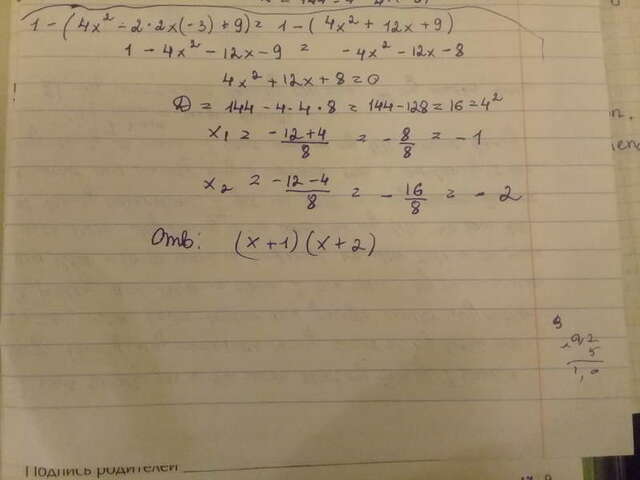 1 - (4x² - 2·2x(-3) + 9) = 1 - (4x² + 12x + 9)
1 - 4x² - 12x - 9 = -4x² - 12x - 8
4x² + 12x + 8 = 0
D = 144 - 4·4·8 = 144 - 128 = 16 = 4²
x₁ = -12+4/8 = -8/8 = -1
x₂ = -12-4/8 = -16/8 = -2
Отв: (x+1)(x+2)
Подпись родителей